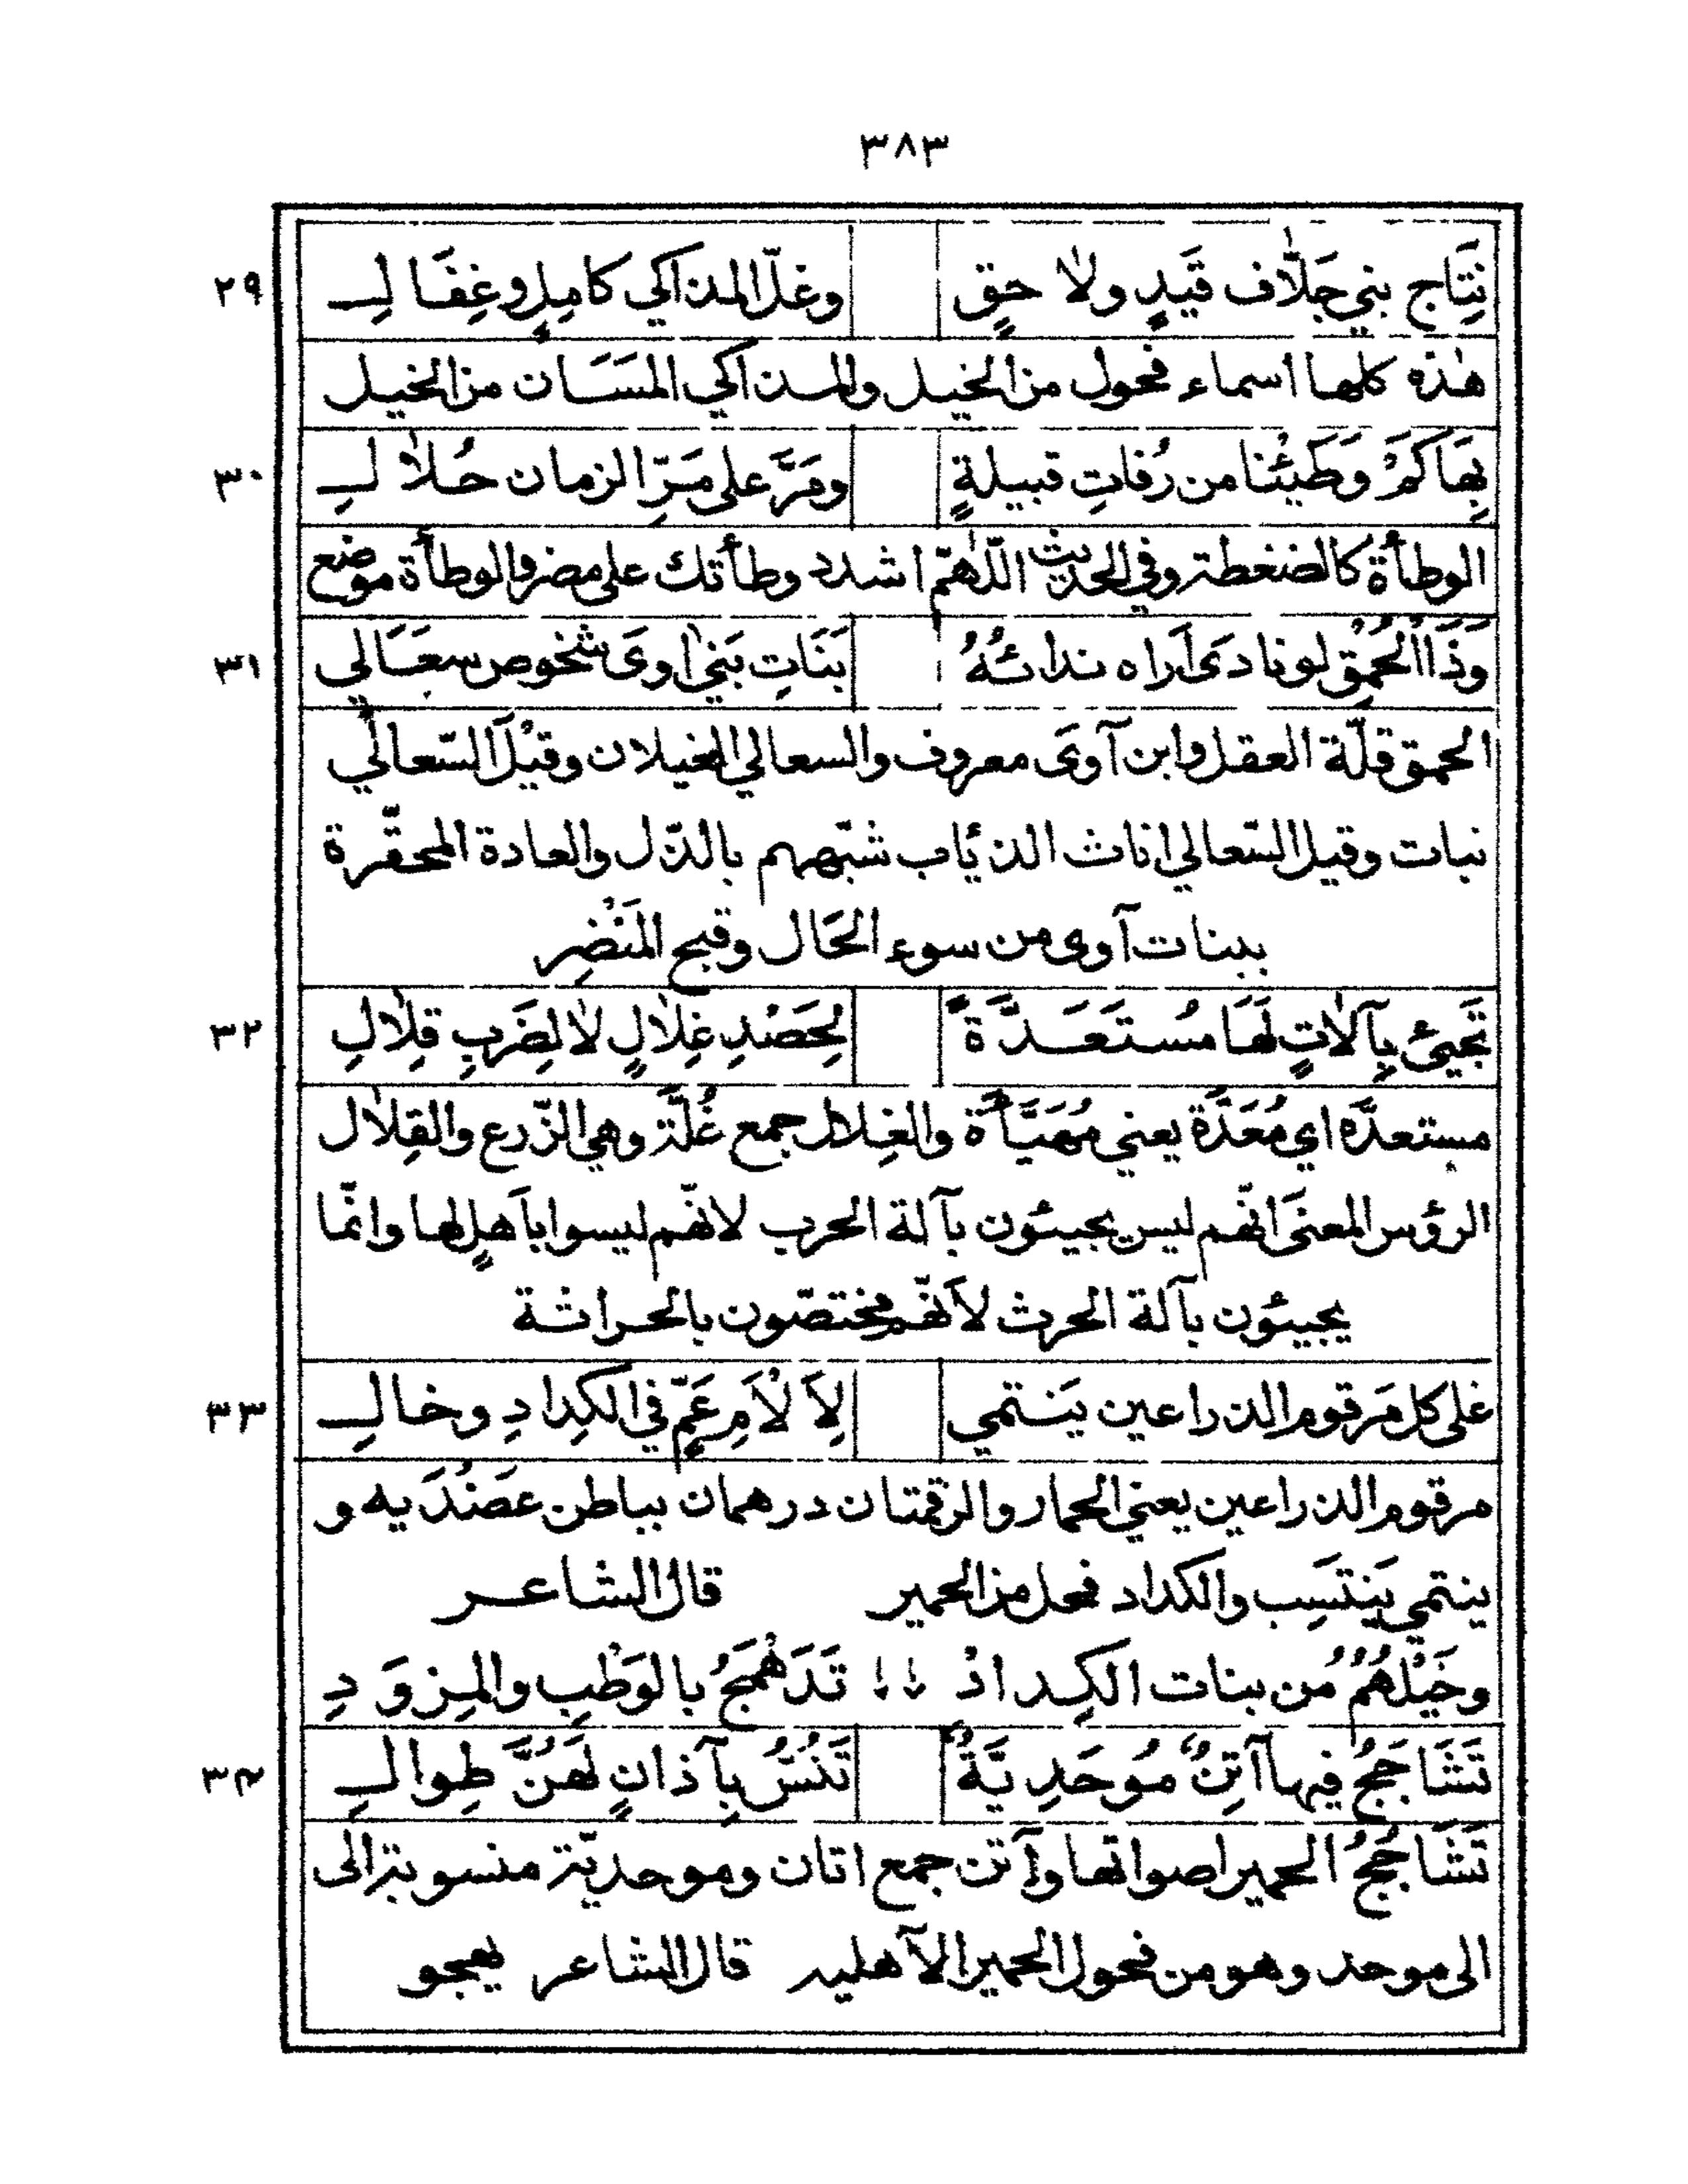 ٣٨٣
٢٩ نِتَاج بني جَلّاف قَيدٍ ولاحقٍ وغلّ المذاكي كامِلٍ وغِفَالِ
هٰذه كلها اسماء فحول من الخيل والمذاكي المسَان من الخيل
٣٠ بِهَا كَمْ وَطَيْئنا من رُفاتِ قبيلةٍ ومَرَّ على مَرّ الزمان حُلالِ
الوطأة كالضغطة وفي الحديث اللّهمّ اشدد وطأتك على مضر والوطأة موضع
٣١ وَذَا الحُمْقِ لو نادىَ اَراه ندائهُ بَنَاتِ بَني اوىَ شخوص سعَالي
الحمق قلّة العقل وابن آوىَ معروف والسعالي الغيلان وقيْل السّعالي
نبات وقيل السّعالي اناث الذئاب شبّههم بالذّل والعادة المحقّرة
ببنات آوى من سوء الحَال وقبح المَنْضِر
٣٢ تَجيئ بِآلاتٍ لهَا مُستَعَدَّةً لِحَصْدِ غِلالٍ لا لِضَربِ قِلالِ
مستعدَّه اي مُعَدَّة يعني مُهَيَّأة والغِلال جمع غُلَّة وهي الزّرع والقِلال
الرؤس المعنىَ انّهم ليس يجيئون بآلة الحرب لانّهم ليسوا باَهلٍ لها وانّما
يجيئون بآلة الحرث لاَنّهم مختصّون بالحراثة
٣٣ على كل مَرقوم الذراعين يَنتمي لِاَلْاَمِ عَمٍّ في الكِدادِ وخالِ
مرقوم الذراعين يعني الحمار والرقمتان درهمان بباطن عضُدَيه و
ينتمي يَنتَسِب والكداد فحل من الحمير قال الشاعر
وخَيْلهُمُ من بنات الكِدادْ تَدَهْمَجُ بالوَطْبِ والمِزوَدِ
٣٤ تَشَاجَجُ فيها آتنٌ مُوحَدِيَّةٌ تَنُسُّ بِآذانٍ لهَنَّ طِوالِ
تَشَاجَجُ الحمير اصواتها وآتن جمع اتان وموحديّة منسوبة الى
الى موحد وهو من فحول الحمير الآهليه قال الشاعر يهجو